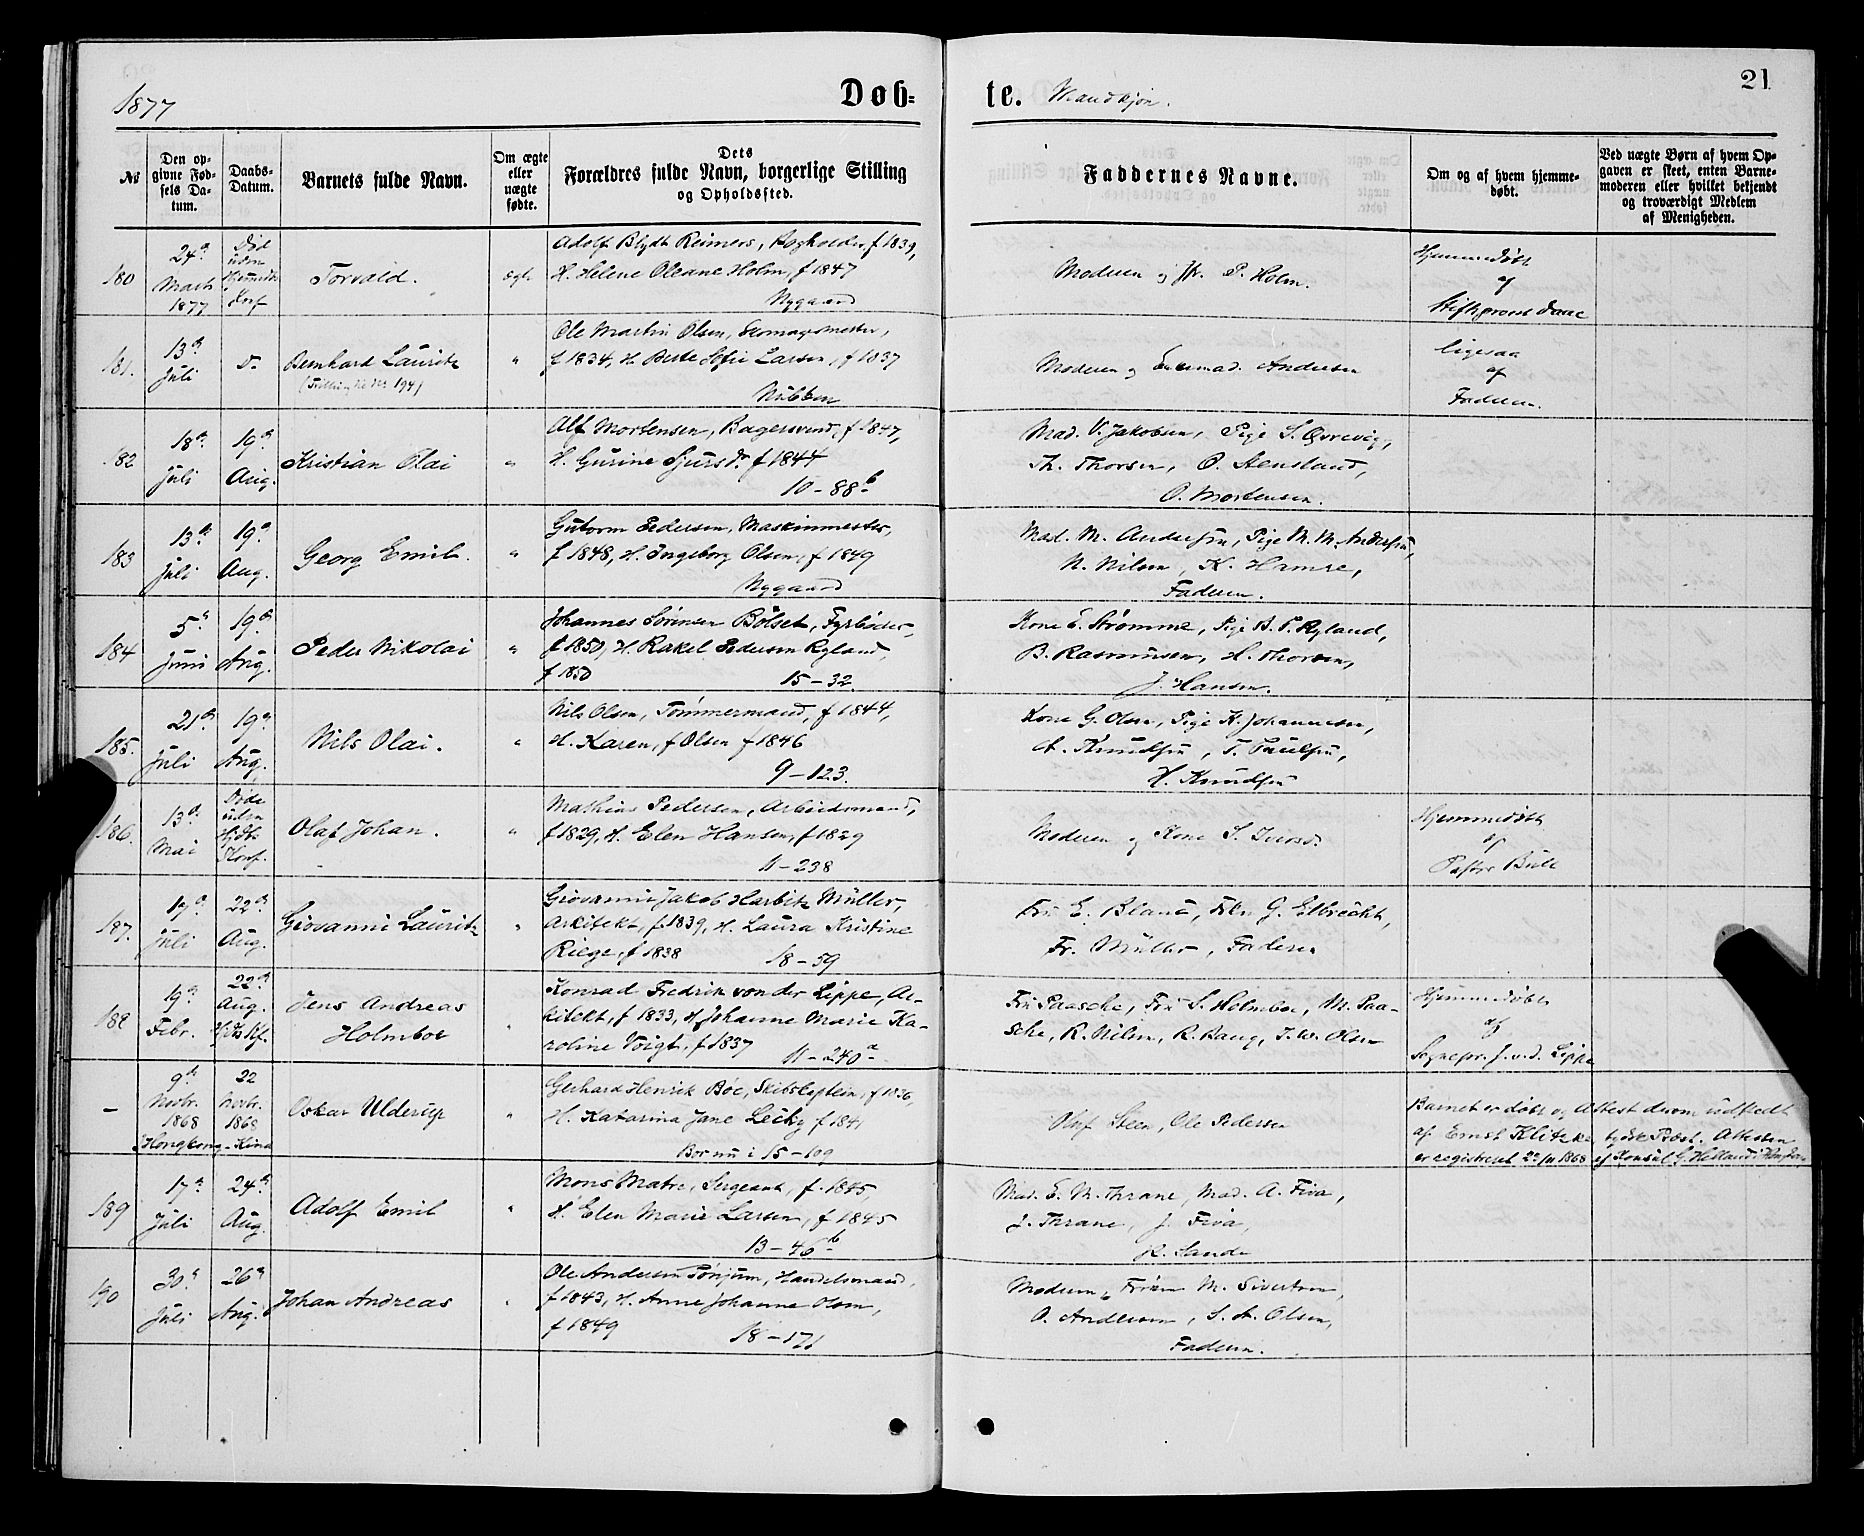 1877
Døb=
te. Mandkjøn.
21
№
Den opgivne Fødsels Datum.
Daabs-Datum.
Barnets fulde Navn.
Om ægte eller uægte fødte.
Dets
Forældres fulde Navn, borgerlige Stilling
og Opholdssted.
Faddernes Navne.
Om og af hvem hjemmedøbt.
Ved uægte Børn af hvem Opgaven er skeet, enten Barnemoderen eller hvilket bekjendt og troværdigt Medlem af Menigheden.
180
24de
Marts
1877
Død
uden
Torvald.
ægte
Adolf Blydt Reimers, Bogholder, f 1839,
H. Helene Oleane Holm, f 1847
Nygaard
Moderen og P. Holm.
Hjemmedøbt
af
Stiftsprovst Daae
181.
13de
Juli
Do
Bernhard Lauritz
(Tvilling til No 194)
"
Ole Martin Olsen, Skomagermester,
f 1834, H. Berte Sofie Larsen, f 1837
Nubben
Moderen og Enkemad. Andersen
ligesaa
af
Faderen.
182
18de
Juli
19de
Aug.
Kristian Olai
"
Alf Mortensen, Bagersvend, f 1847,
H. Gurine Sjursdr. f 1844
10-88b
Mad. V. Jakobsen, Pige S. Øvrevig,
Th. Thorsen, O. Stensland,
O. Mortensen.
183
13de
Juli
19de
Aug.
Georg Emil.
"
Gutorm Pedersen, Maskinmester,
f 1848, H. Ingeborg Olsen, f 1849
Nygaard
Mad. M. Andersen, Pige M. M. Andersen,
N. Nilsen, K. Hamre,
Faderen.
184
5te
Juni
19de
Aug.
Peder Nikolai
"
Johannes Sørensen Bölset, Fyrbøder,
f 1850, H. Rakel Pedersen Ryland,
f 1850
15-32
Kone E. Strømme, Pige B. P. Ryland,
B. Rasmussen, H. Thorsen,
J. Hansen.
185.
21de
Juli
19de
Aug.
Nils Olai.
"
Nils Olsen, Tømmermand, f 1844,
H. Karen, f Olsen f 1846
9-123.
Kone G. Olsen, Pige K. Johannesen,
A. Knudsen, T. Paulsen,
H. Knudsen
186.
13de
Mai
Døde
uden
Hjdb.
Konf.
Olaf Johan.
"
Mathias Pedersen, Arbeidsmand,
f 1829, H. Elen Hansen, f 1829
11-238
Moderen og Kone S. Iversd.
Hjemmedøbt
af
Pastor Bull
187.
17de
Juli
22de
Aug.
Giovanni Lauritz
"
Giovanni Jakob Harbitz Müller,
Arkitekt, f 1839, H. Laura Kristine
Riege, f 1838
18-59
Fru E. Blauu, Frkn G. Elbrecht,
Fr. Müller, Faderen
188
19de
Febr.
22de
Aug.
Jens Andreas
Holmboe
"
Konrad Fredrik von der Lippe, Ar-
kitekt, f 1833, H. Johanne Marie Ka-
roline Voigt, f 1837
11-240a
Fru Paasche, Fru S. Holmboe, M. Paa-
sche, R. Nilsen, R. Haug, J. W. Olsen
Hjemmedøbt
af
Sognepr. J. v. d. Lippe
-
9de
Novbr.
1868
22
Novbr.
1868
Hongkong - Kina
Oskar Ulderup
"
Gerhard Henrik Bøe, Skibskaptein, f 1836,
H. Katarina Jane Lecky f 1841
Bor nu i 15-109
Oluf Steen, Ole Pedersen
Barnet er døbt og Attest derom udstedt
af Ernst Klitzke, tydsk Præst. Attesten
er registreret 23/11 1868 af Konsul G. Helland i Hongkong
189
17de
Juli
24de
Aug.
Adolf Emil
"
Mons Matre, Sergeant, f. 1845,
H. Elen Marie Larsen, f 1845
13-46b
Mad. E. M. Thrane, Mad. A. Fiva,
J. Thrane, J. Fiva,
R. Sande
190
30te
Juli
26de
Aug.
Johan Andreas
"
Ole Andersen Tönjum, Handelsmand,
f 1843, H. Anne Johanne Olsen,
f 1849
18-171
Moderen, Frøken M. Sivertsen,
O. Andersen, S. A. Olsen,
Faderen.